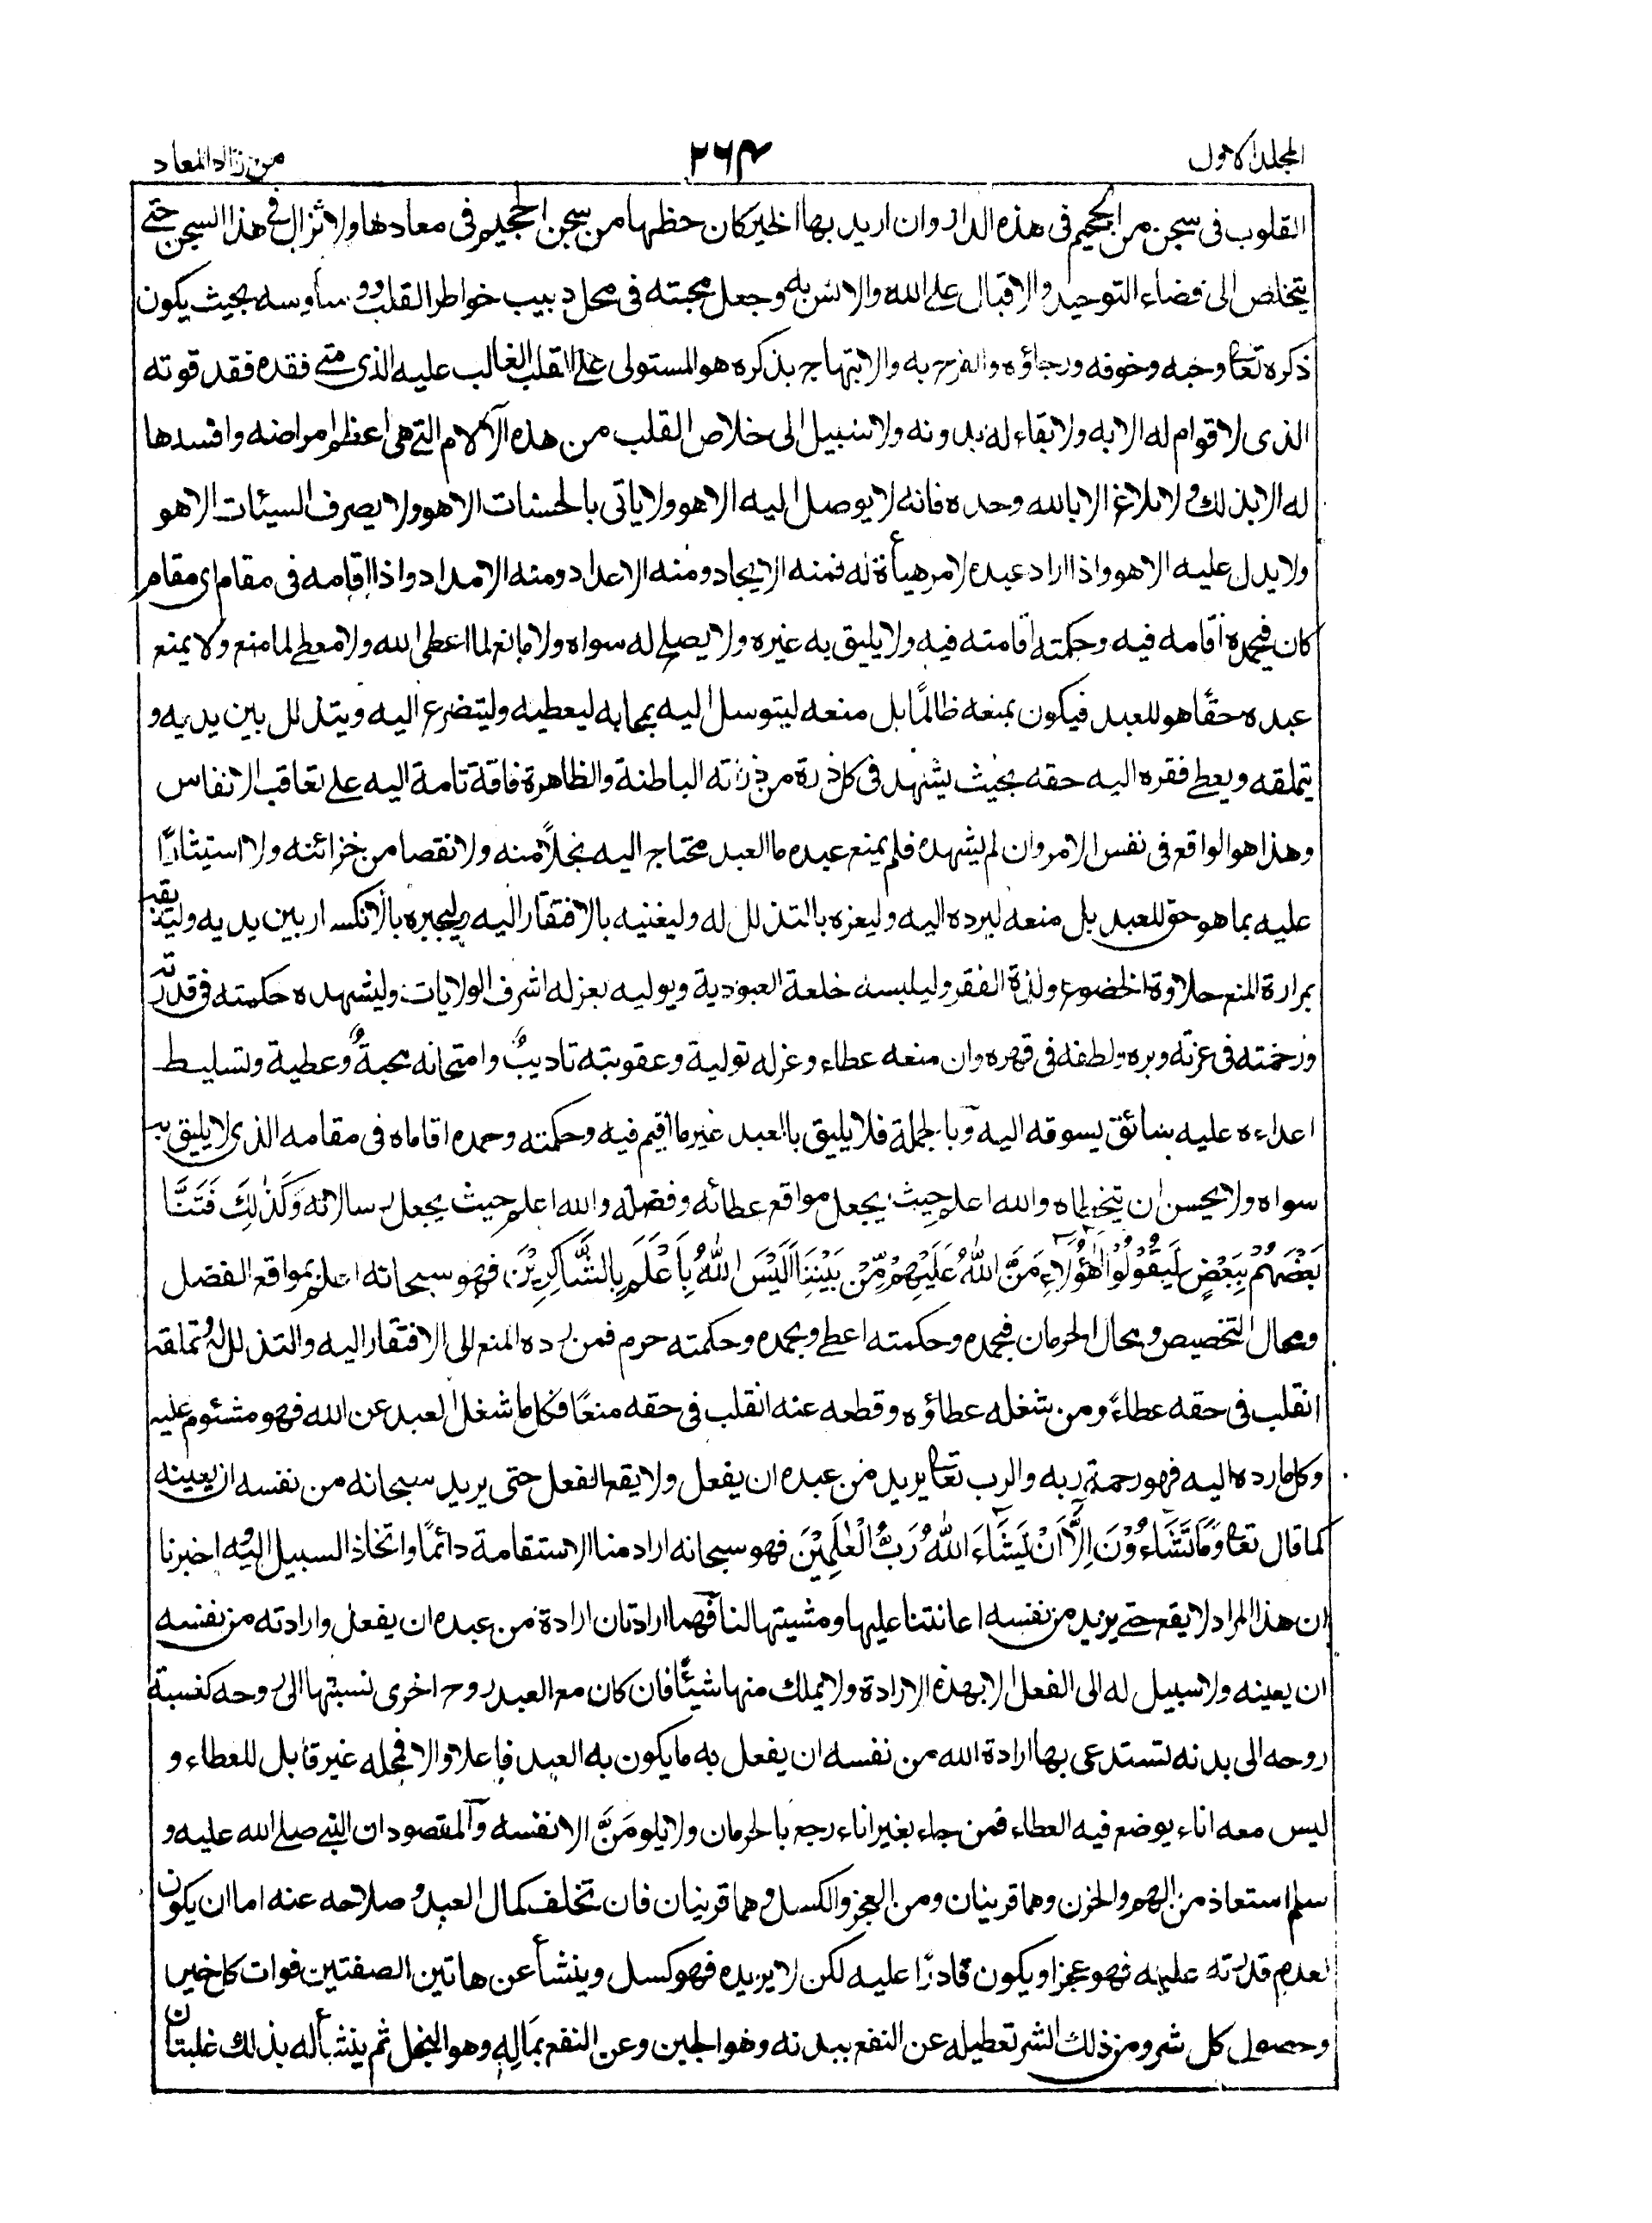 المجلد الاول
٢٦٤
من زاد المعاد
القلوب فى سجن من الجحيم فى هذه الدار وان اريد بها الخير كان حظها من سجن الجحيم فى معادها ولا تزال فى هذا السجن حتى
يتخلص الى فضاء التوحيد والاقبال على الله والانس به وجعل محبته فى محل دبيب خواطر القلب ووساوسه بحيث يكون
ذكره تعا وحبه وخوفه ورجاؤه والفرح به والابتهاج بذكره هو المستولى على القلب الغالب عليه الذى متى فقده فقد قوته
الذى لا قوام له الا به ولا بقاء له بدونه ولا سبيل الى خلاص القلب من هذه الآلام التى هى اعظم امراضه وافسدها
له الا بذلك ولا بلاغ الا بالله وحده فانه لا يوصل اليه الا هو ولا ياتى بالحسنات الا هو ولا يصرف السيئات الا هو
ولا يدل عليه الا هو واذا اراد عبده لامر هيأة له فمنه الايجاد ومنه الاعداد ومنه الامداد واذا اقامه فى مقام اى مقام
كان فبحمده اقامه فيه وحكمته اقامته فيه ولا يليق به غيره ولا يصلح له سواه ولا مانع لما اعطى الله ولا معطى لما منع ولا يمنع
عبده حقا هو للعبد فيكون بمنعه ظالمًا بل منعه ليتوسل اليه بمحابه ليعطيه وليتضرع اليه ويتذلل بين يديه و
يتملقه ويعطى فقره اليه حقه بحيث يشهد فى كل ذرة من ذراته الباطنة والظاهرة فاقة تامة اليه على تعاقب الانفاس
وهذا هو الواقع فى نفس الامر وان لم يشهده فلم يمنع عبده ما العبد محتاج اليه بخلًا منه ولا نقصا من خزائنه ولا استيثارًا
عليه بما هو حق للعبد بل منعه ليرده اليه وليعزه بالتذلل له وليغنيه بالافتقار اليه وليجبره بالانكسار بين يديه وليذيقه
بمرارة المنع حلاوة الخضوع ولذة الفقر وليلبسه خلعة العبودية ويوليه بعزله اشرف الولايات وليشهده حكمته فى قدرته
ورحمته فى عزته وبره ولطفه فى قهره وان منعه عطاء وعزله تولية وعقوبته تاديبٌ وامتحانه محبةٌ وعطية وتسليط
اعداءه عليه سائق يسوقه اليه وبالجملة فلا يليق بالعبد غير ما اقيم فيه وحكمته وحمده اقاماه فى مقامه الذى لا يليق به
سواه ولا يحسن ان يتخطاه والله اعلم حيث يجعل مواقع عطائه وفضله والله اعلم حيث يجعل رسالاته وَكَذٰلِكَ فَتَنَّا
بَعْضَهُمْ بِبَعْضٍ لِيَقُولُوْا اَهٰؤُلَاءِ مَنَّ اللهُ عَلَيْهِمْ مِّنْ بَيْنِنَا اَلَيْسَ اللهُ بِاَعْلَمَ بِالشَّاكِرِيْنَ فهو سبحانه اعلم بمواقع الفضل
ومحال التخصيص ومحال الحرمان فبحمده وحكمته اعطى وبحمده وحكمته حرم فمن رده المنع الى الافتقار اليه والتذلل له وتملقه
انقلب فى حقه عطاءً ومن شغله عطاؤه وقطعه عنه انقلب فى حقه منعًا فكل ما شغل العبد عن الله فهو مشئوم عليه
وكل ما رده اليه فهو رحمة ربه والرب تعا يريد من عبده ان يفعل ولا يقع الفعل حتى يريد سبحانه من نفسه ان يعينه
كما قال تعا وَمَا تَشَاءُوْنَ اِلَّا اَنْ يَشَاءَ اللهُ رَبُّ الْعٰلَمِيْنَ فهو سبحانه اراد منا الاستقامة دائمًا واتخاذ السبيل اليه اخبرنا
ان هذا المراد لا يقع حتى يريد من نفسه اعانتنا عليها ومشيتها لنا فهما ارادتان ارادة من عبده ان يفعل وارادته من نفسه
ان يعينه ولا سبيل له الى الفعل الا بهذه الارادة ولا يملك منها شيئًا فان كان مع العبد روح اخرى نسبتها الى روحه كنسبة
روحه الى بدنه تستدعى بها ارادة الله من نفسه ان يفعل به ما يكون به العبد فاعلا والا فمحله غير قابل للعطاء و
ليس معه اناء يوضع فيه العطاء فمن جاء بغير اناء رجع بالحرمان ولا يلومَنَّ الا نفسه والمقصود ان النبى صلى الله عليه و
سلم استعاذ من الهم والحزن وهما قرينان ومن العجز والكسل وهما قرينان فان تخلف كمال العبد وصلاحه عنه اما ان يكون
لعدم قدرته عليه فهو عجز او يكون قادرًا عليه لكن لا يريده فهو كسل وينشأ عن هاتين الصفتين فوات كل خير
وحصول كل شر ومن ذلك الشر تعطيله عن النفع ببدنه وهو الجبن وعن النفع بماله وهو البخل ثم ينشأ له بذلك غلبتان